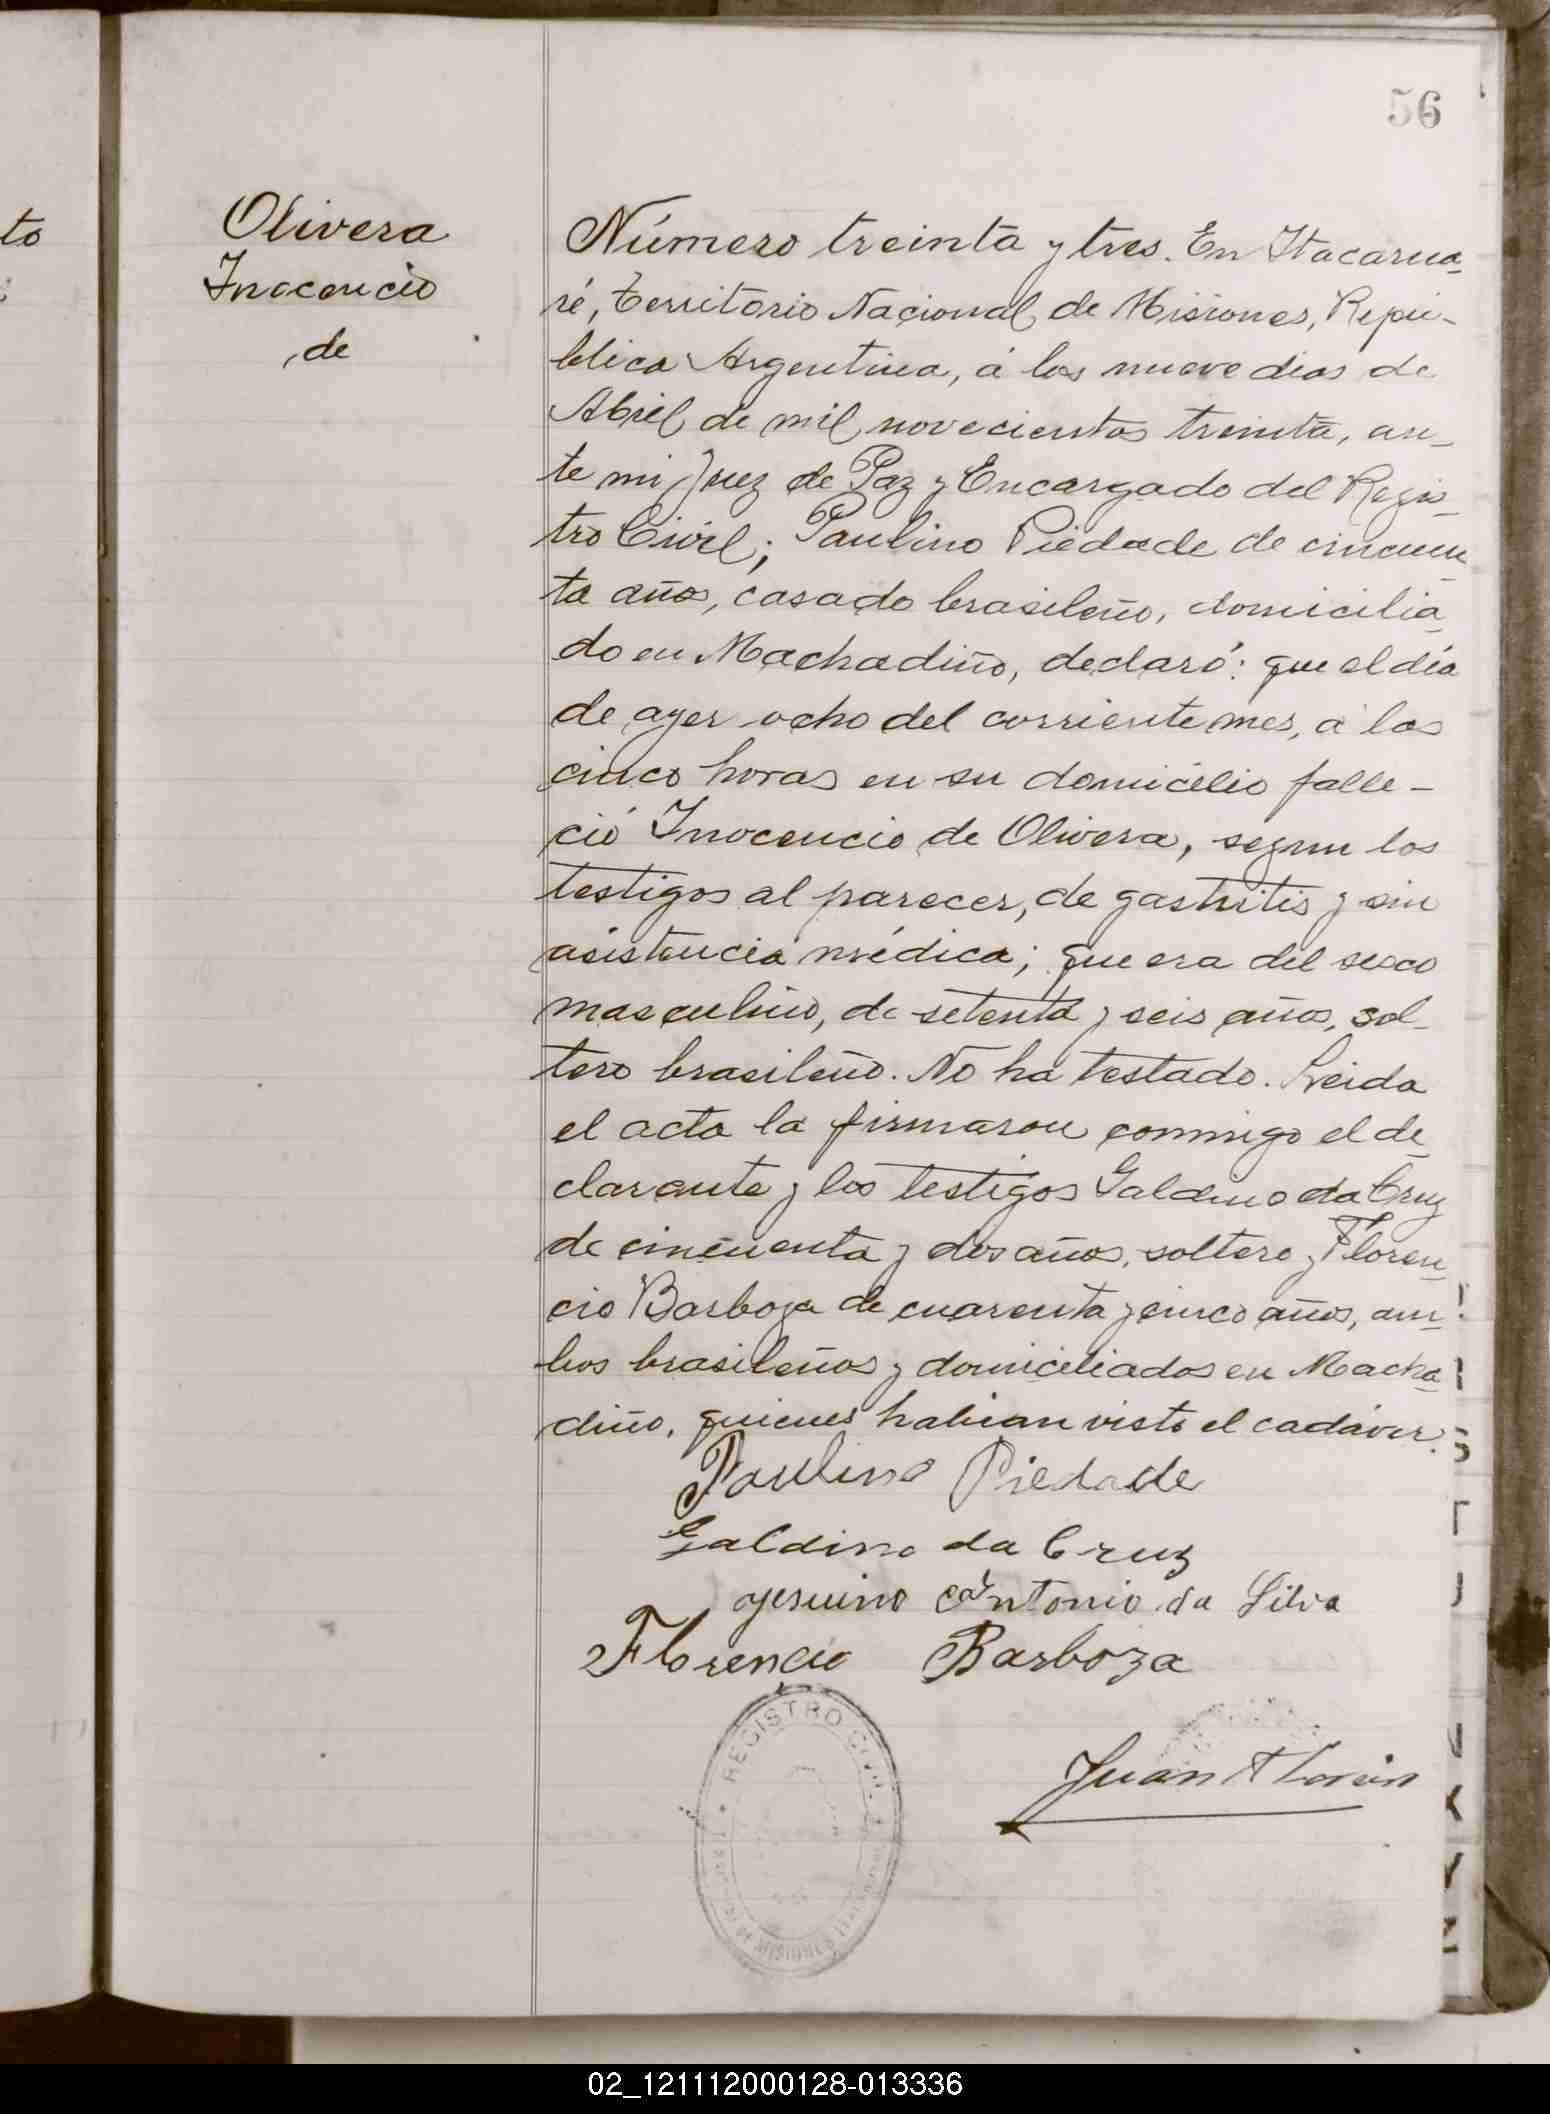 56
to
Olivera
Inocencio
de
Número treinta y tres. En Itacarua-
ré, Territorio Nacional de Misiones, Repú-
blica Argentina, á los nueve dias de
Abril de mil novecientos treinta, an-
te mi Juez de Paz y Encargado del Regis-
tro Civil; Paulino Piedade de cincuen
ta años, casado brasileño, domicilia-
do en Machadiño, declaró: que el día
de ayer ocho del corriente mes, á las
cinco horas en su domicilio falle-
ció Inocencio de Olivera, segun los
testigos al parecer, de gastritis y sin
asistencia médica; que era del sexo
masculino, de setenta y seis años, sol-
tero brasileño. No ha testado. Leida
el acta la firmaron conmigo el de-
clarante y los testigos Galdino da Cruz
de cincuenta y dos años, soltero y Floren-
cio Barboza de cuarenta y cinco años, am-
bos brasileños y domiciliados en Macha-
diño, quienes habian visto el cadáver.
Paulino Piedade
Galdino da Cruz
Antonio da Silva
Florencio Barboza
REGISTRO CIVIL
Juan
02_121112000128-013336